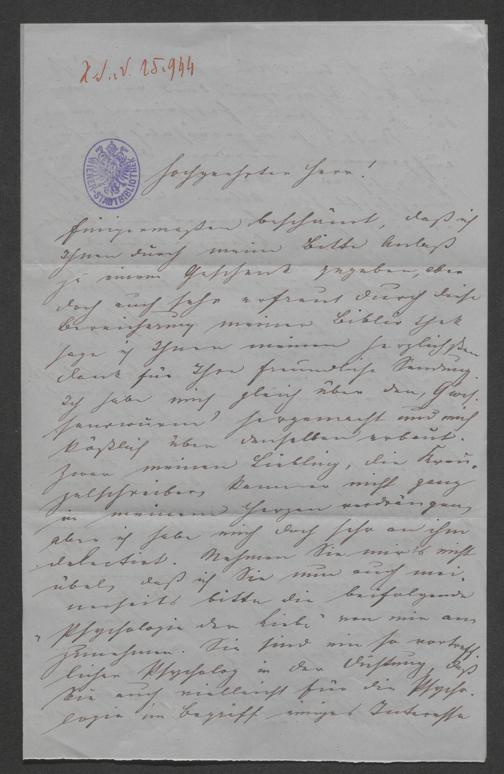 I.N. 15.944
WIENER-STADTBIBLIOTHEK
Hochgeehrter Herr!
Einigermaßen beschämt, daß ich
Ihnen durch meine Bitte Anlaß
zu einem Geschenk gegeben, aber
doch auch sehr erfreut durch diese
Bereicherung meiner Bibliothek
sage ich Ihnen meinen herzlichsten
Dank für Ihre freundliche Sendung.
Ich habe mich gleich über den
hergemacht und mich
köstlich über denselben erbaut.
Zwar meinen Liebling, die
kann er nicht ganz
in meinem Herzen verdrängen,
aber ich habe mich doch sehr an ihm
delectiert. Nehmen Sie mir's nicht
übel, daß ich Sie nun auch mei-
nerseits bitte die beifolgende
"Psychologie der Liebe" von mir an-
zunehmen. Sie sind ein so vortreff-
licher Psycholog in der Dichtung, daß
Sie auch vielleicht für die Psycho-
logie im Begriff einiges Interesse